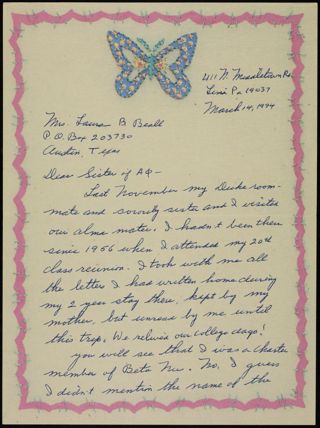 411 N. Middletown Rd.
Lima Pa 19037
March 14, 1994
Mrs. Laura B Beall
P O Box 203730
Austin, Texas
Dear Sister of AΦ-
Last November my Duke room-
mate and sorority sister and I visited
our alma mater. I hadn't been there
since 1956 when I attended my 20th
class reunion. I took with me all
the letters I had written home during
my 2 year stay there, kept by my
mother, but unread by me until
this trip. We relived our college days!
You will see that I was a charter
member of Beta Nu. No, I guess
I didn't mention the name of the